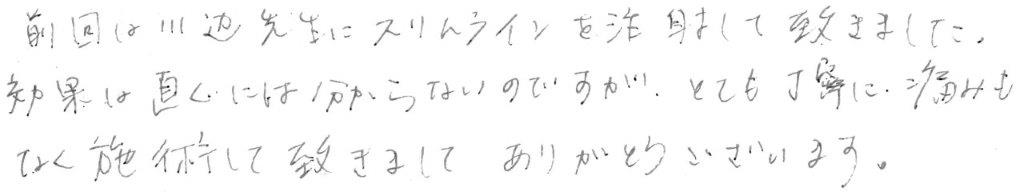 前回は川辺先生にスリムラインを注射して致きました。
効果は直ぐには分からないのですが、とても丁寧に、痛みも
なく施術して致きまして ありがとうございます。